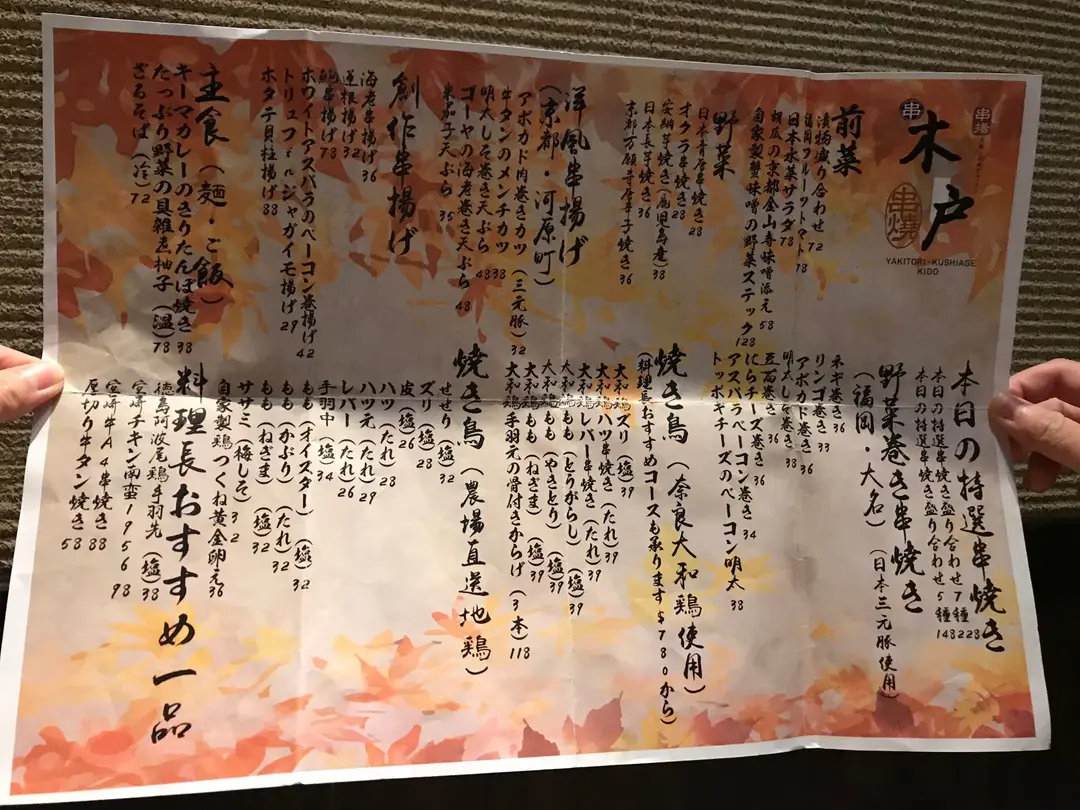 串
木戸
串燒
YAKITORI・KUSHIAGE
KIDO
前菜
漬物盛り合わせ 72
フルーツトマト 78
日本水菜サラダ 78
胡瓜の京都金山寺味噌添え 58
自家製蟹味噌の野菜ステック 128
野菜
日本青唐串焼き 28
オクラ串焼き 28
安納芋焼き(鹿児島産) 38
日本長芋焼き 36
京都万願寺唐辛子焼き 36
洋風串揚げ
(京都・河原町)
アボカド肉巻きカツ(三元豚) 32
牛タンのメンチカツ 38
明太しそ巻き天ぷら 48
ゴーヤの海老巻き天ぷら 48
茄子天ぷら 35
創作串揚げ
海老串揚げ 36
蓮根揚げ 32
鮑串揚げ 78
ホワイトアスパラのベーコン巻揚げ 42
トリュフ ジャガイモ揚げ 29
ホタテ貝柱揚げ 88
主食(麺・ご飯)
キーマカレーのきりたんぽ焼き 38
たっぷり野菜の具雑煮柚子(温) 78
ざるそば(冷) 72
本日の特選串焼き
本日の特選串焼き盛り合わせ7種 228
本日の特選串焼き盛り合わせ5種 148
野菜巻き串焼き(日本三元豚使用)
(福岡・大名)
ネギ巻き 36
リンゴ巻き 33
アボカド巻き 36
明太しそ巻き 38
豆苗巻き 36
にらチーズ巻き 36
アスパラベーコン巻き 34
トッポギチーズのベーコン明太 38
焼き鳥(奈良大和鶏使用)
(料理長おすすめコースも承ります$780から)
大和鶏ズリ(塩) 39
大和鶏ハツ串焼き(たれ) 39
大和鶏レバー串焼き(たれ) 39
大和鶏もも(とうがらし)(塩) 39
大和鶏もも(やきとり)(塩) 39
大和鶏もも(ねぎま)(塩) 39
大和鶏手羽元の骨付きからげ(3本) 118
焼き鳥(農場直送地鶏)
せせり(塩) 32
ズリ(塩) 28
皮(塩) 26
ハツ(たれ) 28
ハツ元(たれ) 29
レバー(たれ) 26
手羽中(塩) 34
もも(オイスター)(塩) 32
もも(かぶり)(たれ) 32
もも(ねぎま)(塩) 32
ササミ(梅しそ) 32
自家製鶏つくね黄金卵え 36
料理長おすすめ一品
徳島阿波尾鶏手羽先(塩) 38
宮崎チキン南蛮1956 98
宮崎牛A4串焼き 88
厚切り牛タン焼き 58